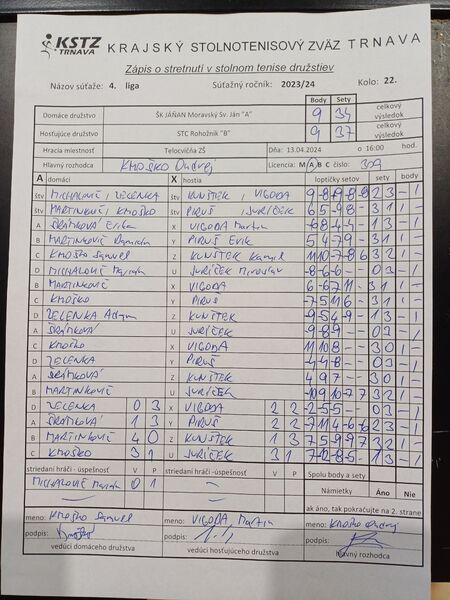 KSTZ
TRNAVA
KRAJSKÝ STOLNOTENISOVÝ ZVÄZ TRNAVA
Zápis o stretnutí v stolnom tenise družstiev
Názov súťaže: 4. liga Súťažný ročník: 2023/24 Kolo: 22.
Body Sety celkový
Domáce družstvo ŠK JÁŇAN Moravský Sv. Ján "A" 9 34 výsledok
Hosťujúce družstvo STC Rohožník "B" 9 37 celkový výsledok
Hracia miestnosť Telocvičňa ZŠ Dňa: 13.04.2024 o 16:00 hod.
Hlavný rozhodca KMOŠKO Ondrej Licencia: M A B C číslo: 309
A domáci X hostia loptičky setov sety body
štv MICHALOVIČ, ZELENKA štv KUNŠTEK, VIGODA 2 3 - 1
štv MARTINKOVIČ, KMOŠKO štv PIRUŠ, JURÍČEK 6 5 -9 8 - 3 1 1 -
A ŠRÁMKOVÁ Erika X VIGODA Martin 1 3 - 1
B MARTINKOVIČ Daniela Y PIRUŠ Erik 5 4 -7 9 - 3 1 1 -
C KMOŠKO Samuel Z KUNŠTEK Kamil 3 2 1 -
D MICHALOVIČ Marián U JURÍČEK Miroslav -8 -6 -6 - - 0 3 - 1
B MARTINKOVIČ X VIGODA 3 1 1 -
C KMOŠKO Y PIRUŠ 3 1 1 -
D ZELENKA Adam Z KUNŠTEK 1 3 - 1
A ŠRÁMKOVÁ U JURÍČEK -9 -8 -9 - - 0 3 - 1
C KMOŠKO X VIGODA 11 10 8 - - 3 0 1 -
D ZELENKA Y PIRUŠ -4 -4 -8 - - 0 3 - 1
A ŠRÁMKOVÁ Z KUNŠTEK 4 9 7 - - 3 0 1 -
B MARTINKOVIČ U JURÍČEK 3 2 1 -
D ZELENKA 0 3 X VIGODA 2 2 -2 -5 -5 - - 0 3 - 1
A ŠRÁMKOVÁ 1 3 Y PIRUŠ 2 2 2 3 - 1
B MARTINKOVIČ 4 0 Z KUNŠTEK 1 3 3 2 1 -
C KMOŠKO 3 1 U JURÍČEK 3 1 1 3 - 1
striedaní hráči - úspešnosť V P striedaní hráči - úspešnosť V P Spolu body a sety
MICHALOVIČ Marián 0 1 Námietky Áno Nie
ak áno, tak pokračujte na 2. strane
meno: KMOŠKO Samuel meno: VIGODA Martin meno: Kmoško Ondrej
podpis: Kmoško podpis: podpis:
vedúci domáceho družstva vedúci hosťujúceho družstva hlavný rozhodca